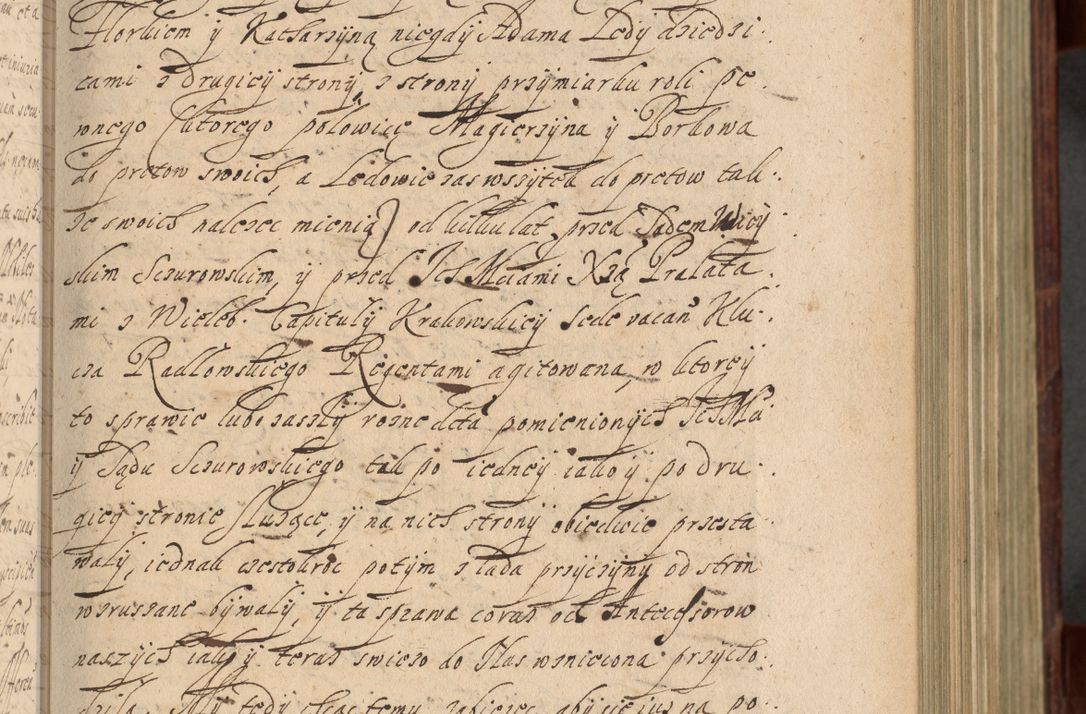 Florkiem ÿ Katharzÿną niegdÿ Adama Lędÿ dziedzi
cami z drugieÿ stronÿ, z stronÿ przÿmiarku roli pe
wnego (ktorego połowicę Magierzÿna ÿ Borkowa
do prętow swoich, a Lędowie zas wszÿtek do prętow tak
ze swoich nalezec mienią) od kilku lat, przed Sądem Wieÿ
skim Sczurowskim, ÿ przed Ich Mciami Xzą Prałata
mi z Wieleb. Capitułÿ Krakowskieÿ Sede vacan Klu
cza Radłowskiego Regentami agitowana, w ktoreÿ
to sprawie lubo zaszłÿ rozne acta pomienionÿch Ich Mci
ÿ Sądu Sczurowskiego tak po iedneÿ iako ÿ po dru
gieÿ stronie służące, ÿ na nich stronÿ obiedwie przesta
wałÿ, iednak częstokroc potÿm z lada przÿczÿnÿ od stron
wzruszane bÿwałÿ, ÿ ta sprawa coraz od Antecessorow
naszÿch iako ÿ teraz swiezo do Nas wzniecona przÿcho
dziła. Mÿ tedÿ chcąc temu zabiezec, abÿ się iusz na po